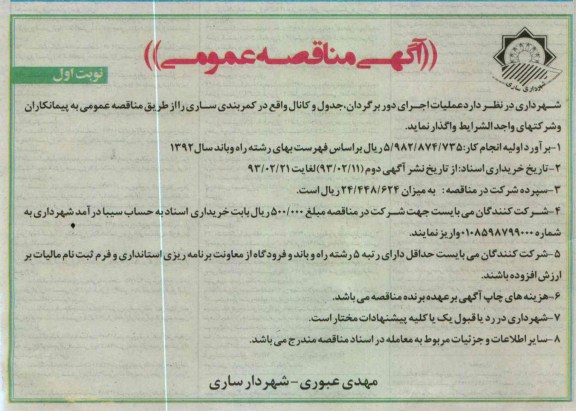 ((آگهی مناقصه عمومی))
شهرداری ساری
نوبت اول
شهرداری در نظر دارد عملیات اجرای دور برگردان، جدول و کانال واقع در کمربندی ساری را از طریق مناقصه عمومی به پیمانکاران
وشرکتهای واجد الشرایط واگذار نماید.
۱-بر آورد اولیه انجام کار: ۵/۹۸۲/۸۷۴/۷۳۵ ریال بر اساس فهرست بهای رشته راه وباند سال ۱۳۹۲
۲-تاریخ خریداری اسناد: از تاریخ نشر آگهی دوم (۹۳/۰۲/۱۱) لغایت ۹۳/۰۲/۲۱
۳-سپرده شرکت در مناقصه: به میزان ۲۴/۴۴۸/۶۲۴ ریال است.
۴-شرکت کنندگان می بایست جهت شرکت در مناقصه مبلغ ۵۰۰/۰۰۰ ریال بابت خریداری اسناد به حساب سیبا در آمد شهرداری به
شماره ۰۱۰۸۵۹۸۷۹۹۰۰۰ واریز نمایند.
۵-شرکت کنندگان می بایست حداقل دارای رتبه ۵ رشته راه و باند و فرودگاه از معاونت برنامه ریزی استانداری و فرم ثبت نام مالیات بر
ارزش افزوده باشند.
۶-هزینه های چاپ آگهی بر عهده برنده مناقصه می باشد.
۷-شهرداری در رد یا قبول یک یا کلیه پیشنهادات مختار است.
۸-سایر اطلاعات و جزئیات مربوط به معامله در اسناد مناقصه مندرج می باشد.
مهدی عبوری-شهردار ساری